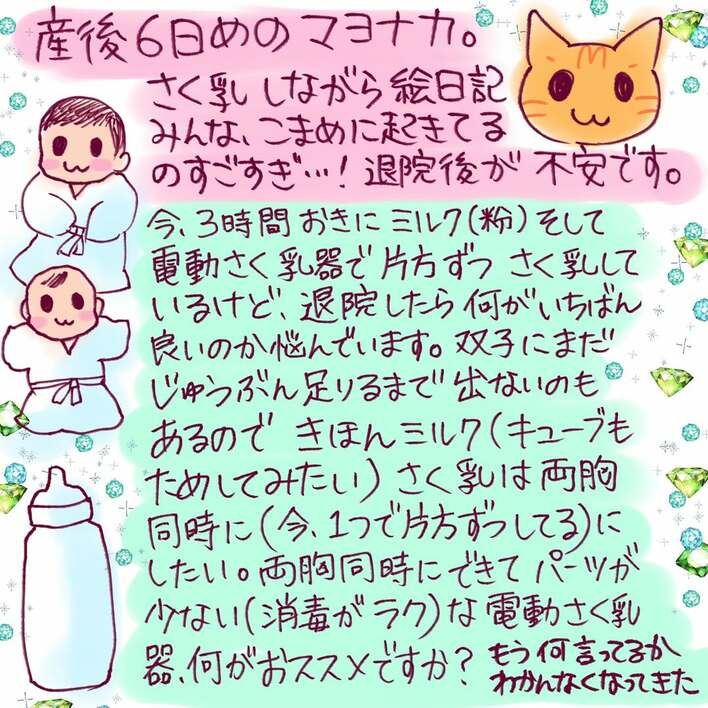 産後6日めのマヨナカ。
さく乳しながら絵日記
みんな、こまめに起きてる
のすごすぎ…!退院後が不安です。
今、3時間おきにミルク(粉)そして
電動さく乳器で片方ずつさく乳して
いるけど、退院したら何がいちばん
良いのか悩んでいます。双子にまだ
じゅうぶん足りるまで出ないのも
あるのできほんミルク(キューブも
ためしてみたい)さく乳は両胸
同時に(今、1つで片方ずつしてる)に
したい。両胸同時にできてパーツが
少ない(消毒がラク)な電動さく乳
器、何がおススメですか?
もう何言ってるか
わかんなくなってきた